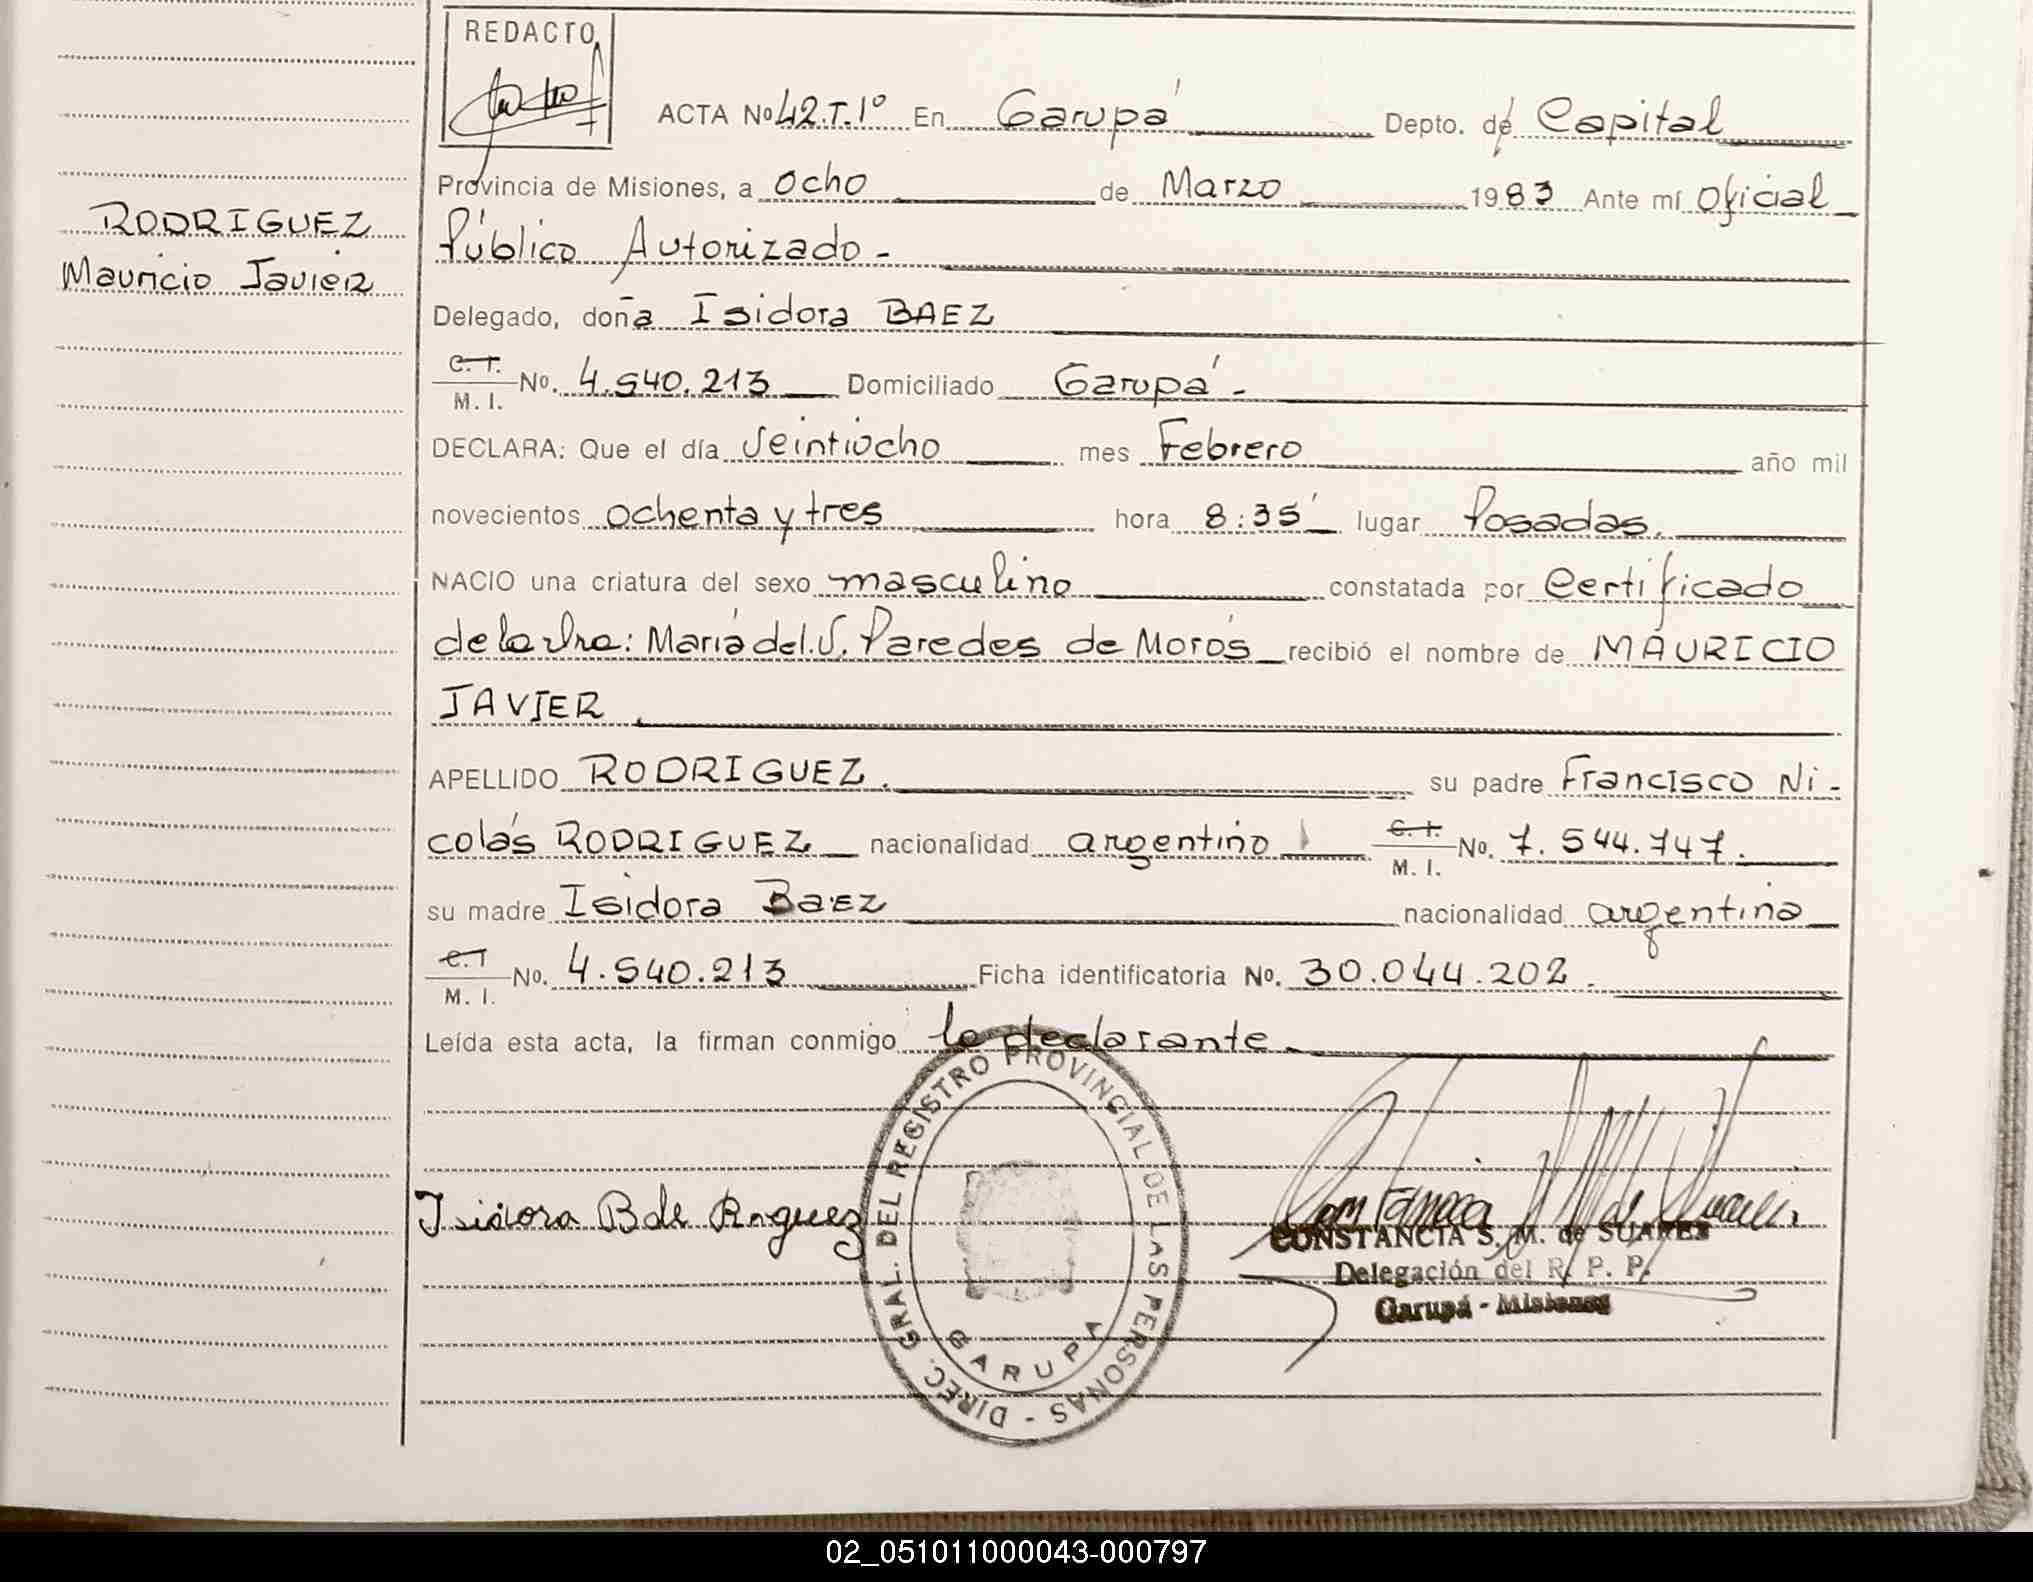 REDACTO
ACTA Nº 42.T.1º En Garupá Depto. de Capital
Provincia de Misiones, a ocho de Marzo 1983 Ante mí Oficial
Público Autorizado -
RODRIGUEZ
Mauricio Javier
Delegado, doña Isidora BAEZ
C.I.
M. I. No. 4.540.213 Domiciliado Garupá -
DECLARA: Que el día Veintiocho mes Febrero año mil
novecientos ochenta y tres hora 8:35 lugar Posadas.
NACIO una criatura del sexo masculino constatada por Certificado
de la Dra: María del V. Paredes de Moros recibió el nombre de MAURICIO
JAVIER
APELLIDO RODRIGUEZ. su padre Francisco Ni-
colás RODRIGUEZ nacionalidad argentino C.I.
M. I. No. 7.544.747.
su madre Isidora Baez nacionalidad argentina
C.I
M. I. No. 4.540.213 Ficha identificatoria No. 30.044.202.
Leída esta acta, la firman conmigo la declarante
DIREC. GRAL. DEL REGISTRO PROVINCIAL DE LAS PERSONAS -
GARUPA
Isidora B de
CONSTANCIA S. M. de SUAREZ
Delegación del R. P. P.
Garupá - Misiones
02_051011000043-000797